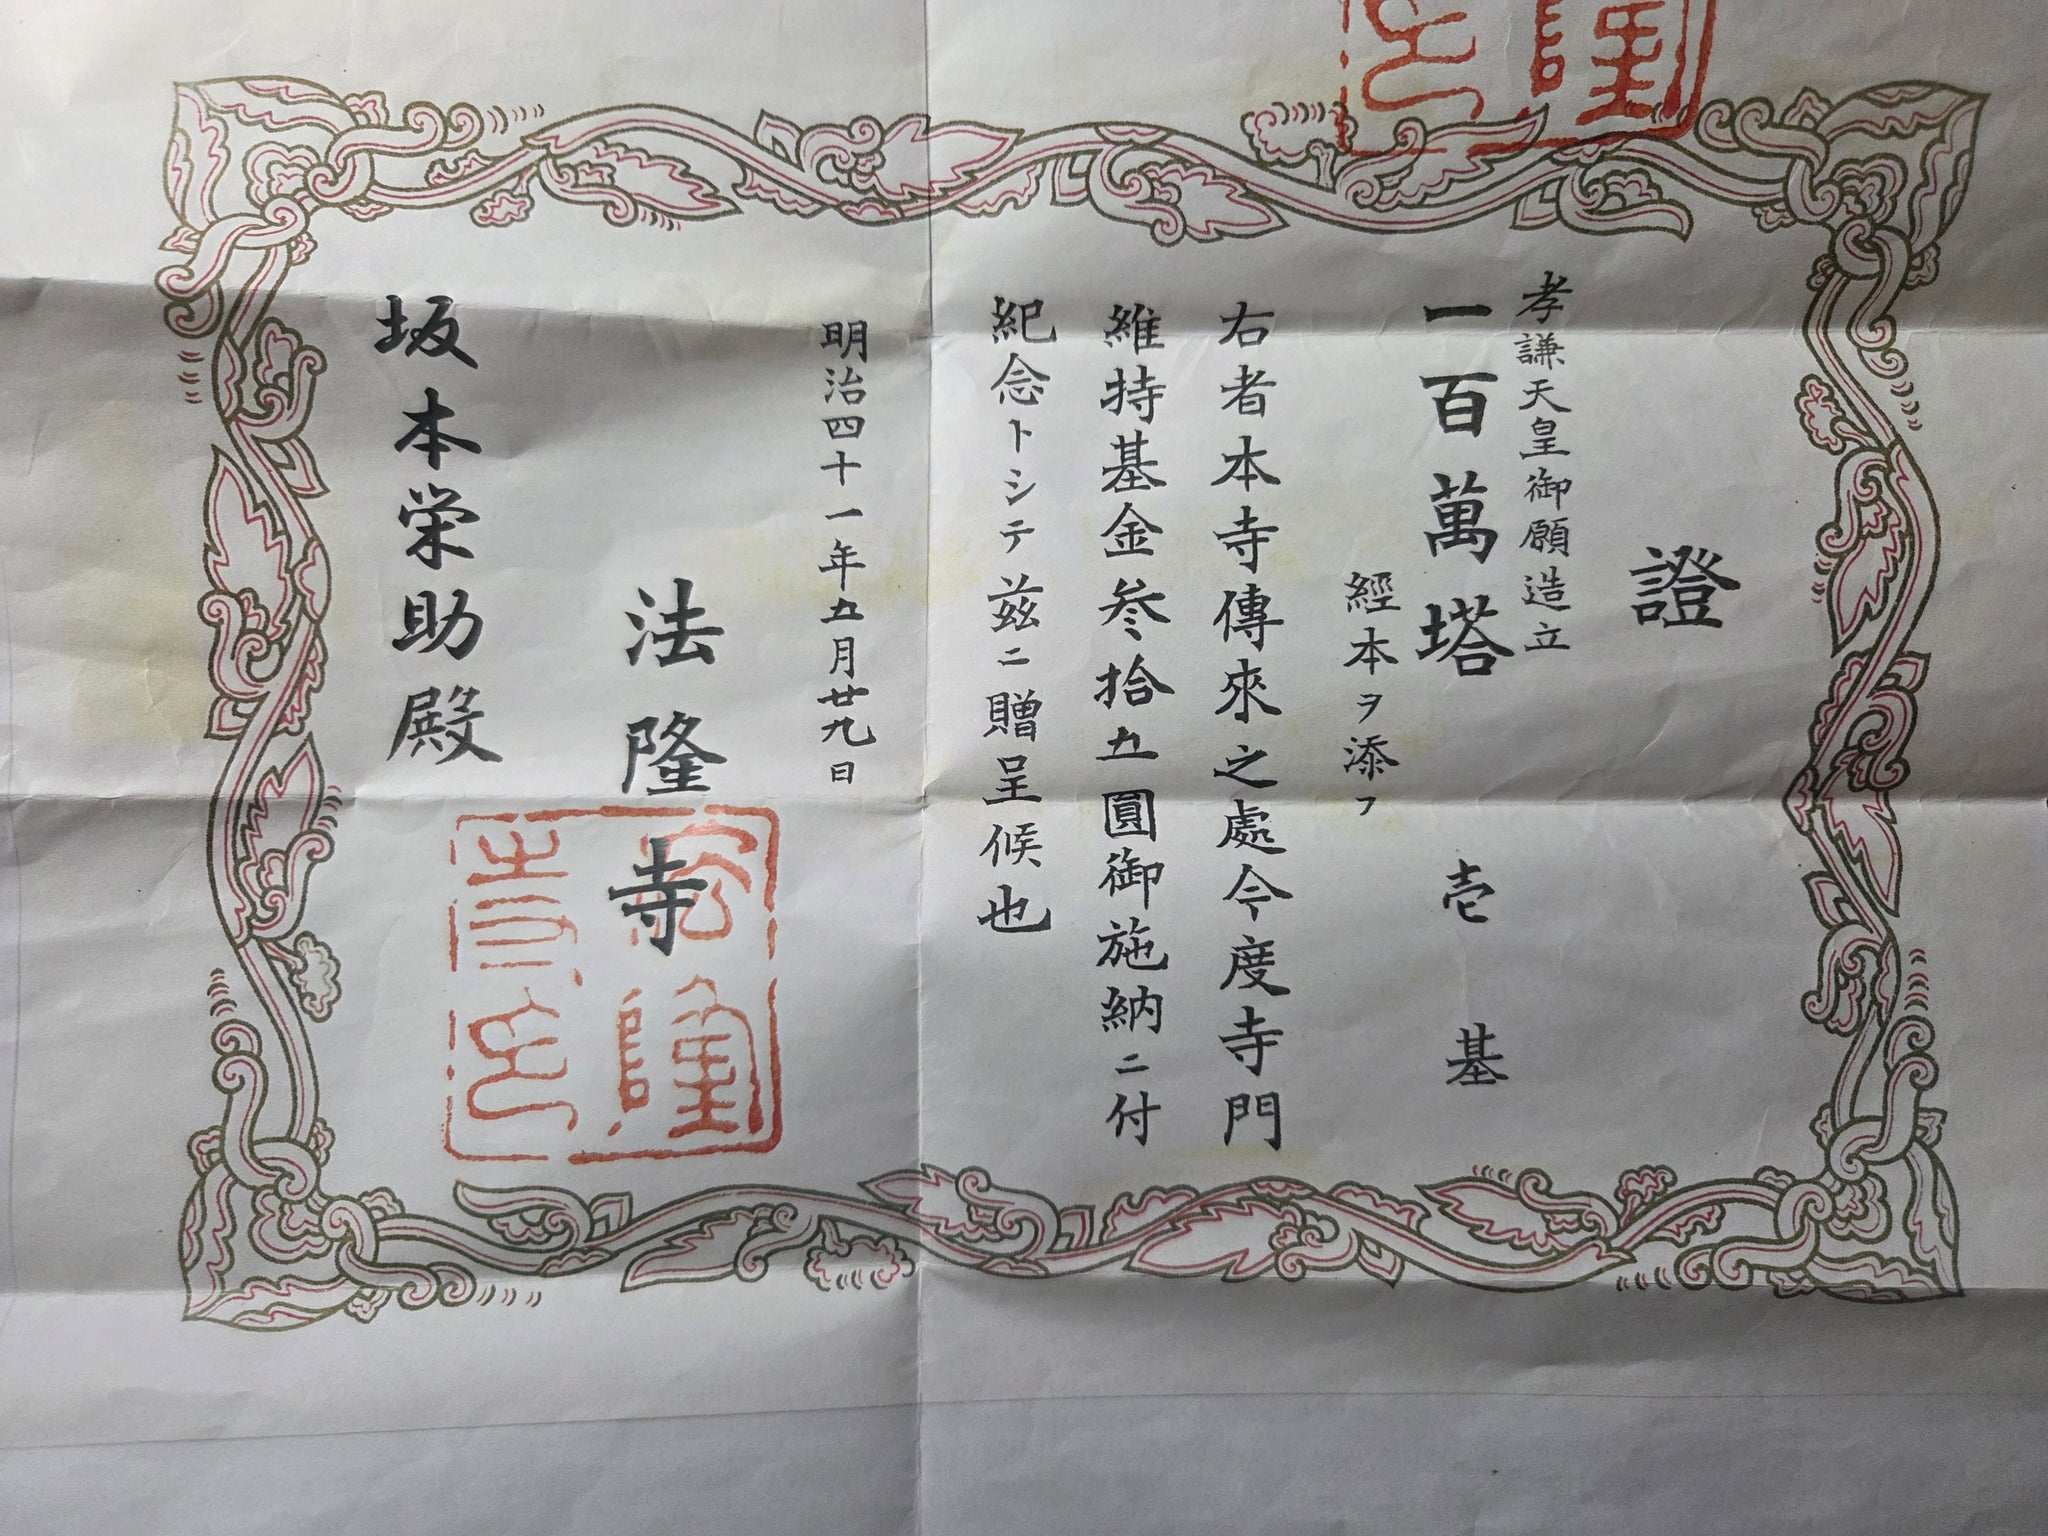 證
孝謙天皇御願造立
一百萬塔 壱基
經本ヲ添フ
右者本寺傳來之處今度寺門
維持基金参拾五圓御施納ニ付
紀念トシテ茲ニ贈呈候也
明治四十一年五月廿九日
法隆寺
坂本栄助殿